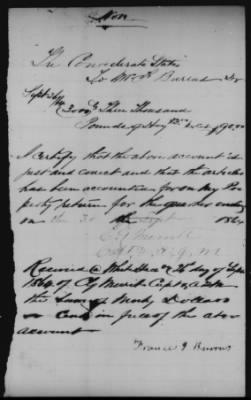 The Confederate States
To Burrus Dr
Sept 26th 3000 Three Thousand
Pounds of Hay $90.00
I certify that the above account is
just and correct and that the articles
has been accounted for on my Pro
perty return for the quarter ending
on the 30 Sept 1864
Capt & A Q M
Received @ the 26 day of Sept
1864 of Capt &
the Sum of Ninety Dollars
Cents in full of the above
account
Francis J Burrus